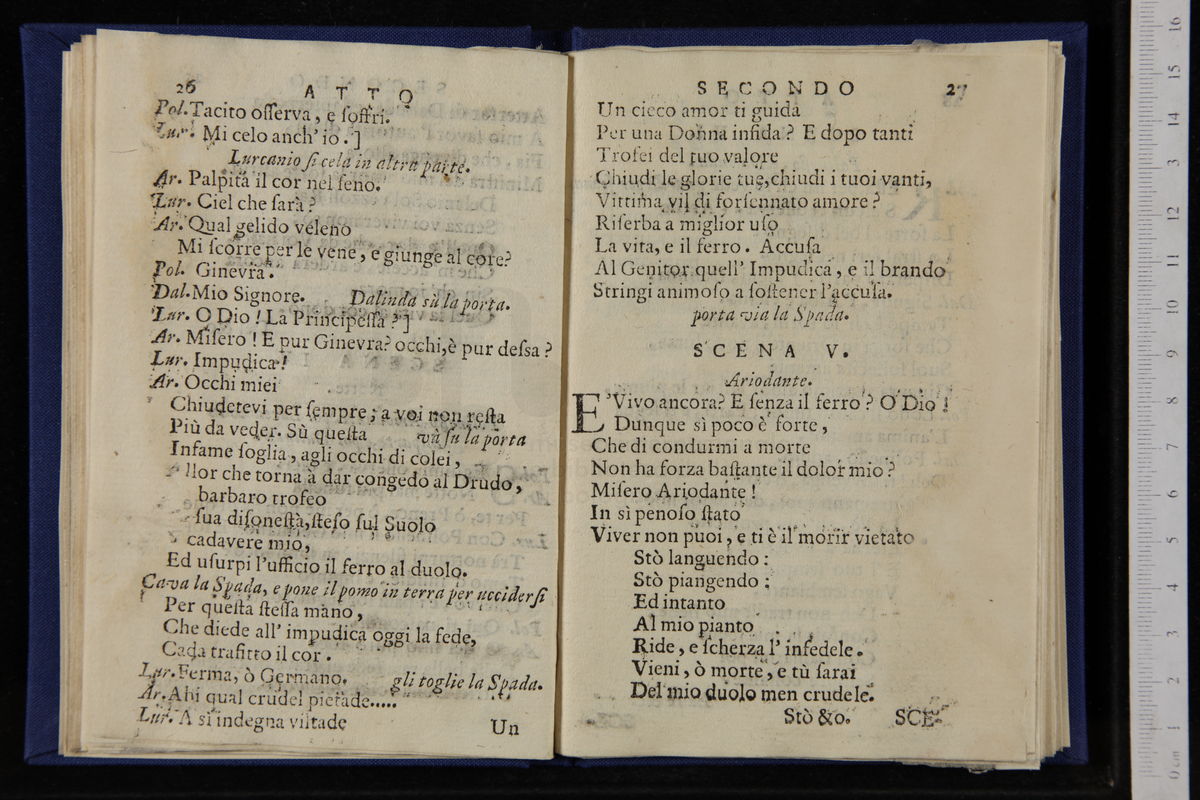 26 ATTO
Pol. Tacito oſſerva, e ſoffri.
Lur. Mi celo anch' io. ]
Lurcanio ſi cela in altra parte.
Ar. Palpita il cor nel ſeno.
Lur. Ciel che ſarà?
Ar. Qual gelido veleno
Mi ſcorre per le vene, e giunge al core?
Pol. Ginevra.
Dal. Mio Signore. Dalinda sù la porta.
Lur. O Dio! La Principeſſa? ]
Ar. Miſero! E pur Ginevra? occhi, è pur deſsa?
Lur. Impudica!
Ar. Occhi miei
Chiudetevi per ſempre; a voi non reſta
Più da veder. Sù queſta và ſu la porta
Infame ſoglia, agli occhi di colei,
llor che torna à dar congedo al Drudo,
barbaro trofeo
ſua diſoneſtà, ſteſo ſul Suolo
cadavere mio,
Ed uſurpi l'ufficio il ferro al duolo.
Cava la Spada, e pone il pomo in terra per ucciderſi
Per queſta ſteſſa mano,
Che diede all' impudica oggi la fede,
Cada trafitto il cor.
Lur. Ferma, ò Germano. gli toglie la Spada.
Ar. Ahi qual crudel pietade.....
Lur. A sì indegna viltade
Un
SECONDO 27
Un cieco amor ti guida
Per una Donna infida? E dopo tanti
Trofei del tuo valore
Chiudi le glorie tue, chiudi i tuoi vanti,
Vittima vil di forſennato amore?
Riſerba a miglior uſo
La vita, e il ferro. Accuſa
Al Genitor quell' Impudica, e il brando
Stringi animoſo a ſoſtener l'accuſa.
porta via la Spada.
SCENA V.
Ariodante.
E Vivo ancora? E ſenza il ferro? O Dio!
Dunque sì poco è forte,
Che di condurmi a morte
Non ha forza baſtante il dolor mio?
Miſero Ariodante!
In sì penoſo ſtato
Viver non puoi, e ti è il morir vietato
Stò languendo:
Stò piangendo;
Ed intanto
Al mio pianto
Ride, e ſcherza l' infedele.
Vieni, ò morte, e tù ſarai
Del mio duolo men crudele.
Stò &c. SCE-
0 cm 1 2 3 4 5 6 7 8 9 10 11 12 13 14 15 16